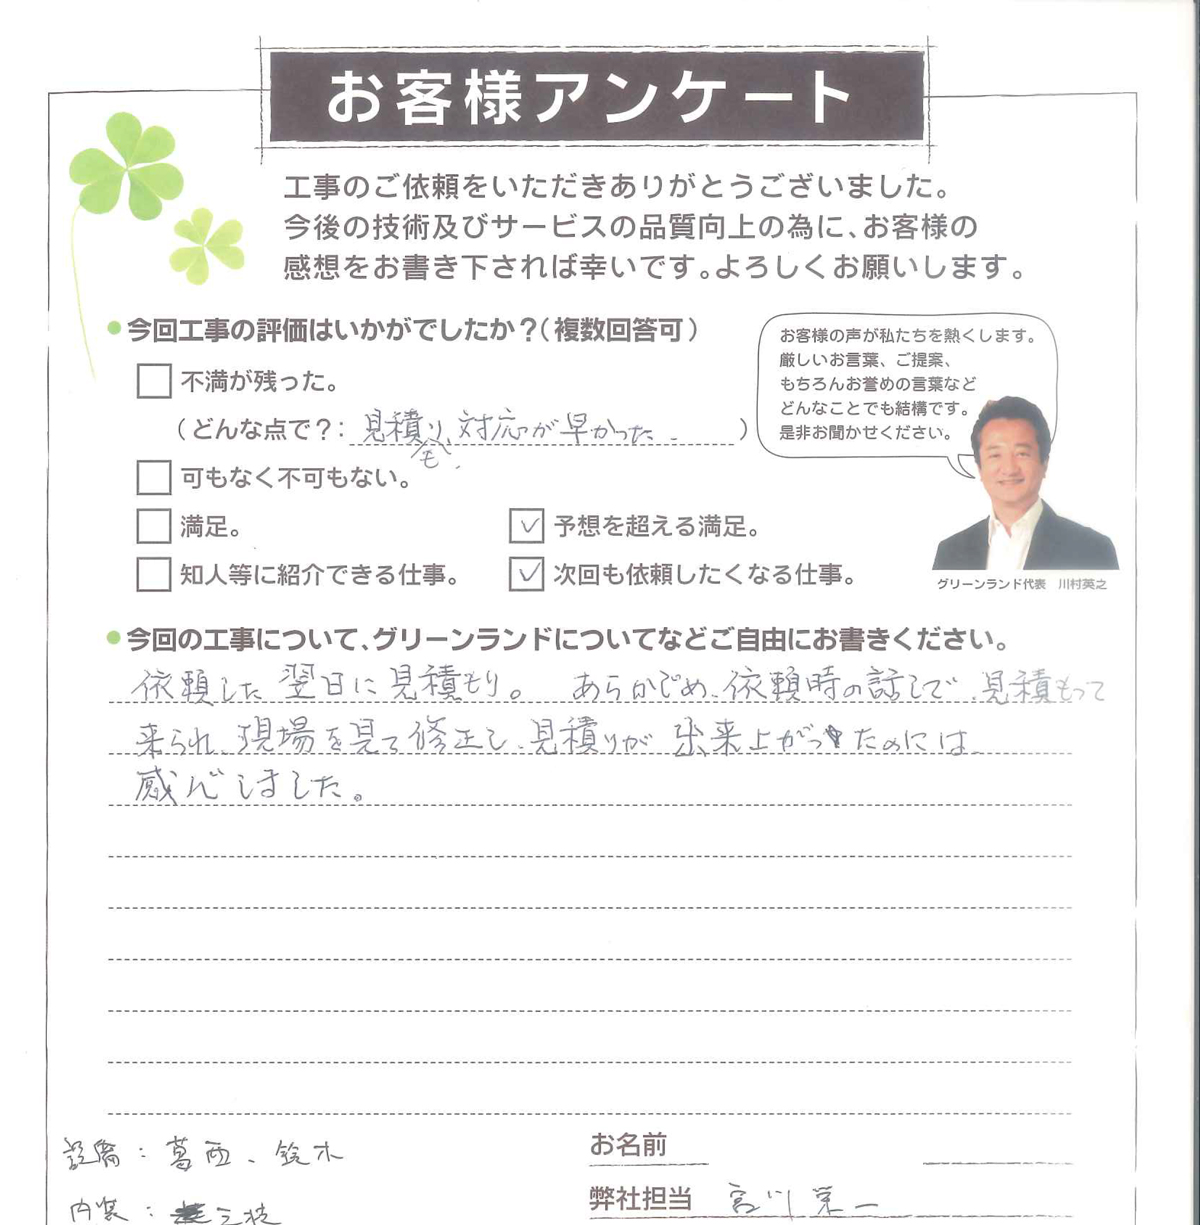 お客様アンケート
工事のご依頼をいただきありがとうございました。
今後の技術及びサービスの品質向上の為に、お客様の
感想をお書き下されば幸いです。よろしくお願いします。
●今回工事の評価はいかがでしたか？（複数回答可）
お客様の声が私たちを熱くします。
厳しいお言葉、ご提案、
もちろんお誉めの言葉など
どんなことでも結構です。
是非お聞かせください。
不満が残った。
（どんな点で？：見積り、対応が早かった。）
可もなく不可もない。
満足。
予想を超える満足。
知人等に紹介できる仕事。
次回も依頼したくなる仕事。
グリーンランド代表　川村英之
●今回の工事について、グリーンランドについてなどご自由にお書きください。
依頼した翌日に見積もり。あらかじめ、依頼時の話しで、見積もって
来られ、現場を見て修正し、見積りが出来上がったのには
感心しました。
設備：葛西、鈴木
お名前
内装：
弊社担当　宮川栄一